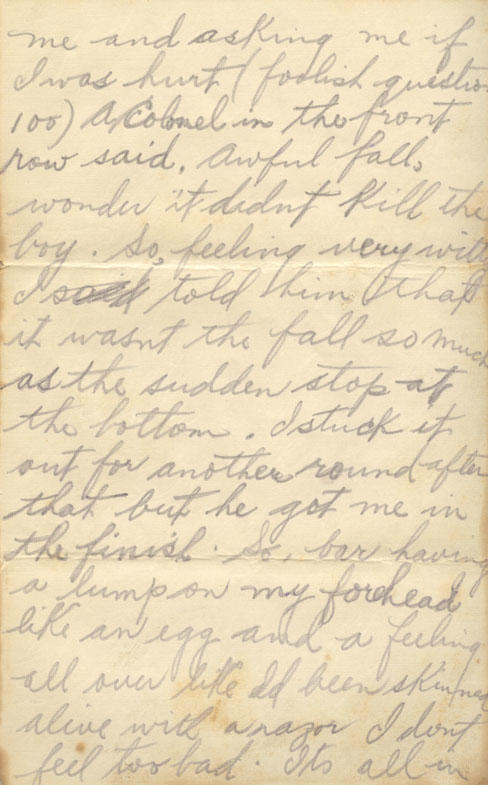 me and asking me if
I was hurt (foolish questio
100) A, Colonel in the front
row said, Awful fall,
wonder it didnt kill the
boy. So, feeling very witt
I said told him that
it wasnt the fall so much
as the sudden stop at
the bottom. I stuck it
out for another round after
that but he got me in
the finish. So, bar having
a lump on my forehead
like an egg and a feeling
all over like Id been skinned
alive with a razor I dont
feel too bad. Its all in